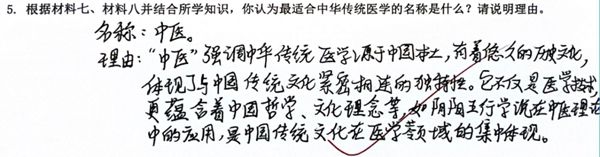 5. 根据材料七、材料八并结合所学知识，你认为最适合中华传统医学的名称是什么？请说明理由。
名称：中医。
理由：“中医”强调中华传统医学源于中国本土，有着悠久的历史文化，
体现了与中国传统文化紧密相连的独特性。它不仅是医学技术，
更蕴含着中国哲学、文化理念等，如阴阳五行学说在中医理论
中的应用，是中国传统文化在医学领域的集中体现。